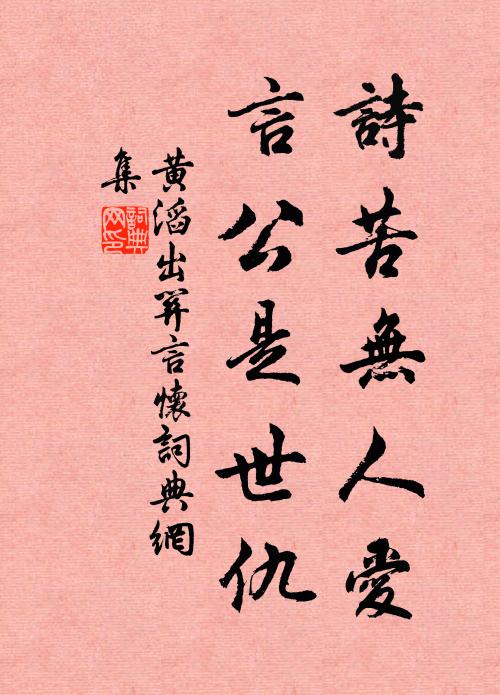 詩苦無人愛
言公是世仇
黃滔出關言懷詞典網
集
詞典
网印